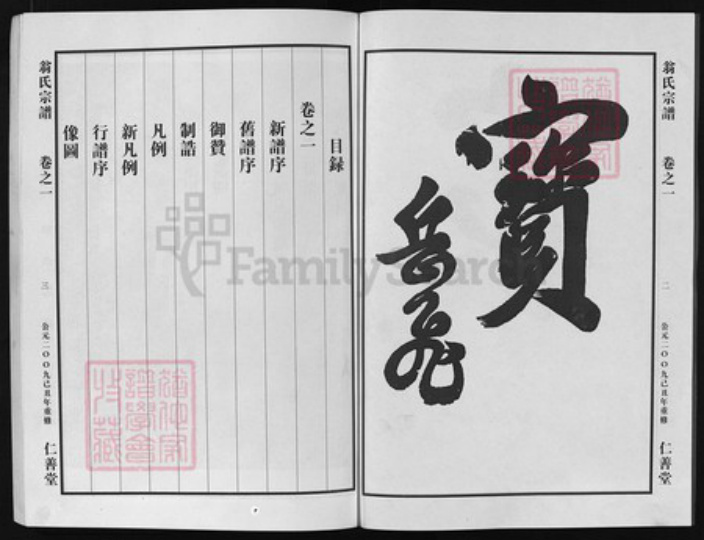 翁氏宗譜
卷之一
二
公元二００九己丑年重修
仁善堂
寶
岳飛
目録
卷之一
新譜序
舊譜序
御贊
制誥
凡例
新凡例
行譜序
像圖
翁氏宗譜
卷之一
三
公元二００九己丑年重修
仁善堂
FamilySearch